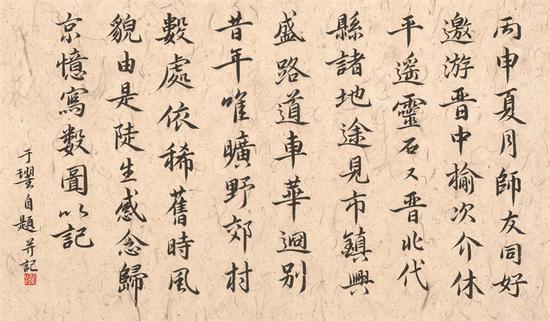 丙申夏月師友同好
邀游晋中榆次介休
平遥靈石又晋北代
縣諸地途見市鎮興
盛路道車華迥别
昔年唯曠野郊村
數處依稀舊時風
貌由是陡生感念歸
京憶寫数圖以記
于璎自題并記